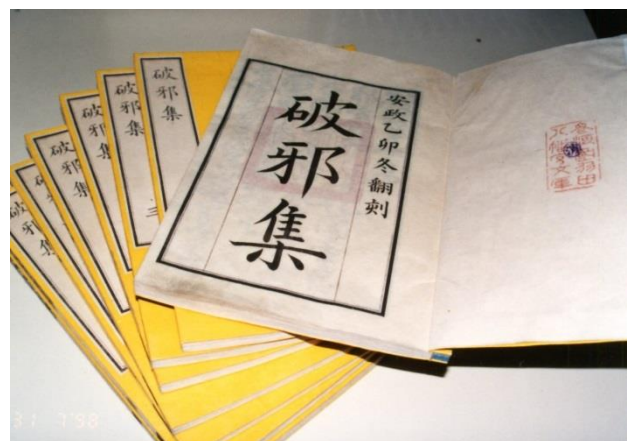 安政乙卯冬翻刻
破邪集
破邪集
破邪集
破邪集
破邪集
破邪集
31 7'98